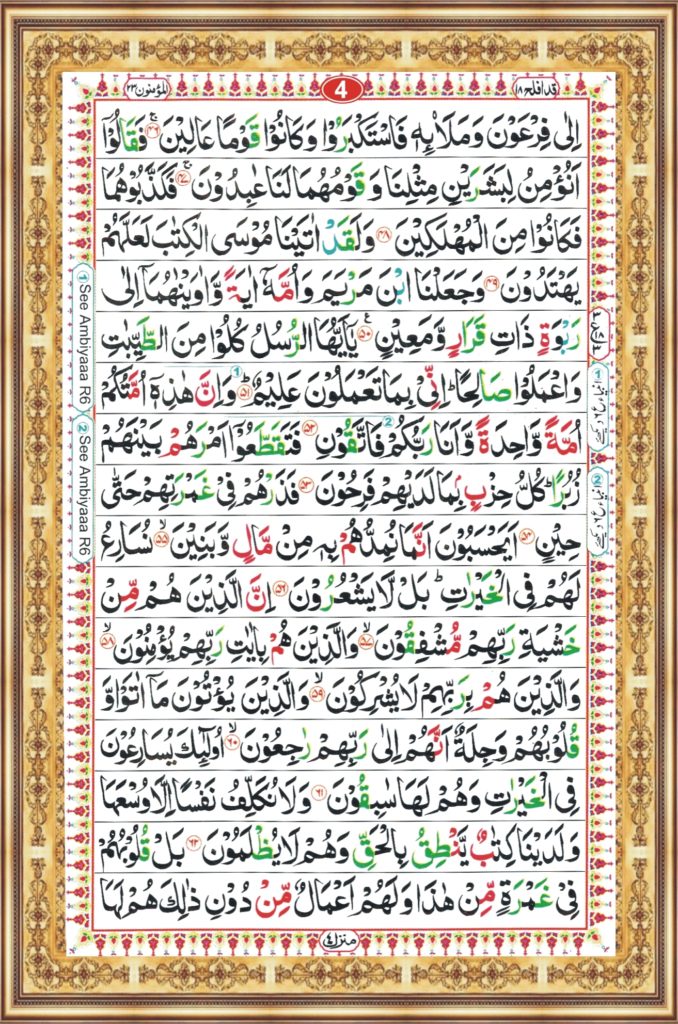 قد افلح ۱۸
4
المؤمنون ۲۳
اِلٰى فِرْعَوْنَ وَمَلَا۟ئِهٖ فَاسْتَكْبَرُوْا وَكَانُوْا قَوْمًا عَالِيْنَ ۚ ﴿۴۶﴾ فَقَالُوْٓا
اَنُؤْمِنُ لِبَشَرَيْنِ مِثْلِنَا وَ قَوْمُهُمَا لَنَا عٰبِدُوْنَ ۚ ﴿۴۷﴾ فَكَذَّبُوْهُمَا
فَكَانُوْا مِنَ الْمُهْلَكِيْنَ ﴿۴۸﴾ وَلَقَدْ اٰتَيْنَا مُوْسَى الْكِتٰبَ لَعَلَّهُمْ
يَهْتَدُوْنَ ﴿۴۹﴾ وَجَعَلْنَا ابْنَ مَرْيَمَ وَاُمَّهٗٓ اٰيَةً وَّاٰوَيْنٰهُمَآ اِلٰى
رَبْوَةٍ ذَاتِ قَرَارٍ وَّمَعِيْنٍ ﴿۵۰﴾ ع يٰٓاَيُّهَا الرُّسُلُ كُلُوْا مِنَ الطَّيِّبٰتِ
وَاعْمَلُوْا صَالِحًا ؕ اِنِّيْ بِمَا تَعْمَلُوْنَ عَلِيْمٌ ؕ ﴿۵۱﴾ 1 وَاِنَّ هٰذِهٖٓ اُمَّتُكُمْ
اُمَّةً وَّاحِدَةً وَّاَنَا رَبُّكُمْ فَاتَّقُوْنِ ﴿۵۲﴾ 2 فَتَقَطَّعُوْٓا اَمْرَهُمْ بَيْنَهُمْ
زُبُرًا ؕ كُلُّ حِزْبٍۭ بِمَا لَدَيْهِمْ فَرِحُوْنَ ﴿۵۳﴾ فَذَرْهُمْ فِيْ غَمْرَتِهِمْ حَتّٰى
حِيْنٍ ﴿۵۴﴾ اَيَحْسَبُوْنَ اَنَّمَا نُمِدُّهُمْ بِهٖ مِنْ مَّالٍ وَّبَنِيْنَ ۙ ﴿۵۵﴾ نُسَارِعُ
لَهُمْ فِي الْخَيْرٰتِ ؕ بَلْ لَّا يَشْعُرُوْنَ ﴿۵۶﴾ اِنَّ الَّذِيْنَ هُمْ مِّنْ
خَشْيَةِ رَبِّهِمْ مُّشْفِقُوْنَ ۙ ﴿۵۷﴾ وَالَّذِيْنَ هُمْ بِاٰيٰتِ رَبِّهِمْ يُؤْمِنُوْنَ ۙ ﴿۵۸﴾
وَالَّذِيْنَ هُمْ بِرَبِّهِمْ لَا يُشْرِكُوْنَ ۙ ﴿۵۹﴾ وَالَّذِيْنَ يُؤْتُوْنَ مَآ اٰتَوْا وَّ
قُلُوْبُهُمْ وَجِلَةٌ اَنَّهُمْ اِلٰى رَبِّهِمْ رٰجِعُوْنَ ۙ ﴿۶۰﴾ اُولٰٓئِكَ يُسَارِعُوْنَ
فِي الْخَيْرٰتِ وَهُمْ لَهَا سٰبِقُوْنَ ﴿۶۱﴾ وَلَا نُكَلِّفُ نَفْسًا اِلَّا وُسْعَهَا
وَلَدَيْنَا كِتٰبٌ يَّنْطِقُ بِالْحَقِّ وَهُمْ لَا يُظْلَمُوْنَ ﴿۶۲﴾ بَلْ قُلُوْبُهُمْ
فِيْ غَمْرَةٍ مِّنْ هٰذَا وَلَهُمْ اَعْمَالٌ مِّنْ دُوْنِ ذٰلِكَ هُمْ لَهَا
منزل ۴
1 See Ambiyaaa R6
2 See Ambiyaaa R6